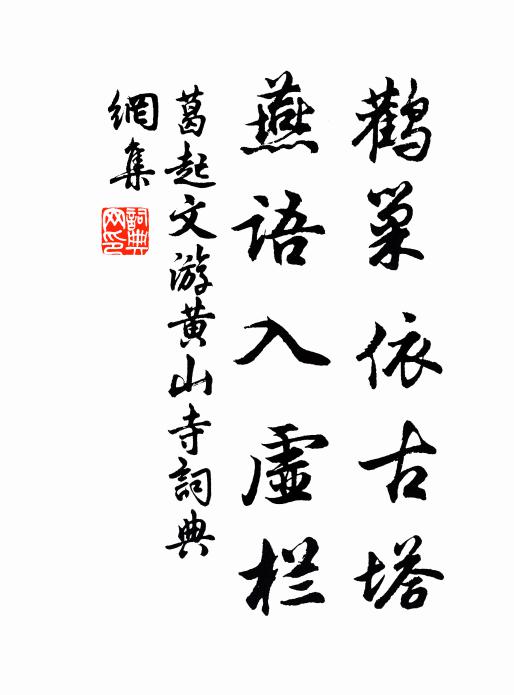 鸛巢依古塔
燕語入虛栏
葛起文游黄山寺詞典
網集
詞典
网印